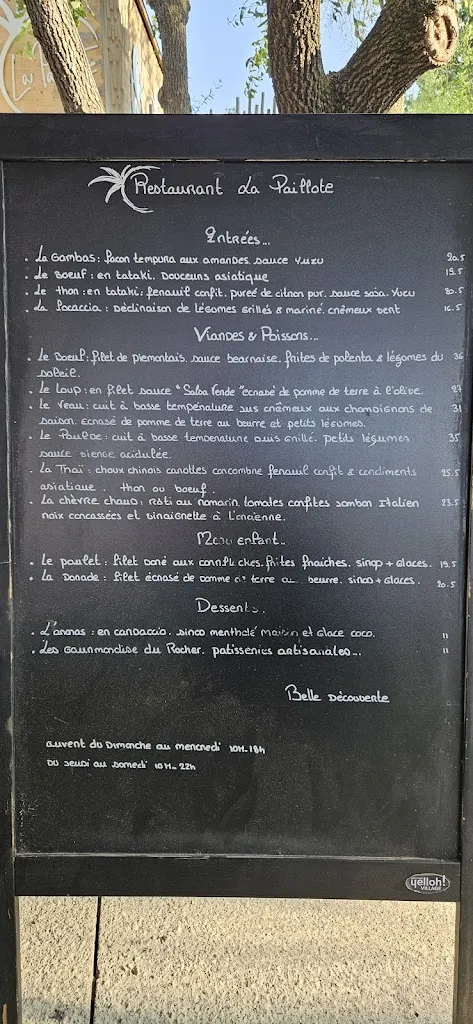 Restaurant La Paillote
Entrées...
. La Gambas: façon tempura aux amandes. sauce Yuzu 20.5
. Le Boeuf: en tataki. Douceurs asiatique 19.5
. Le thon: en tataki, fenouil confit. pureé de citron pur. sauce soja. Yuzu 20.5
. La focaccia: Déclinaison de légumes Grillés & mariné. crémeux vert 16.5
Viandes & Poissons...
. Le Boeuf: filet de piemontais. sauce bearnaise. frites de polenta & légumes du 36
soleil.
. Le Loup: en filet sauce "Salsa Verde" écrasé de pomme de terre à l'olive. 27
. Le Veau: cuit à basse température jus crémeux aux champignons de 31
saison. écrasé de pomme de terre au beurre et petits légumes.
. Le Poulpe: cuit à basse temperature puis grillé. petits légumes 35
sauce vierge acidulée.
. La Thaï: choux chinois carottes concombre fenouil confit & condiments 25.5
asiatique. thon ou boeuf.
. La chèvre chaud: rôti au romarin. tomates confites jambon Italien 23.5
noix concassées et vinaigrette à l'ancienne.
Menu enfant..
. Le poulet: filet pané aux cornflackes. frites fraiches. sirop + Glaces. 19.5
. La Dorade: filet écrasé de pomme de terre au beurre. sirop + glaces. 20.5
Desserts.
. L'ananas: en carpaccio. sirop mentholé maison et Glace coco. 11
. Les Gourmandise du Rocher. patisseries artisanales... 11
Belle Découverte
ouvert du Dimanche au mercredi 10H-18h
Du jeudi au samedi 10H-22h
yelloh!
VILLAGE